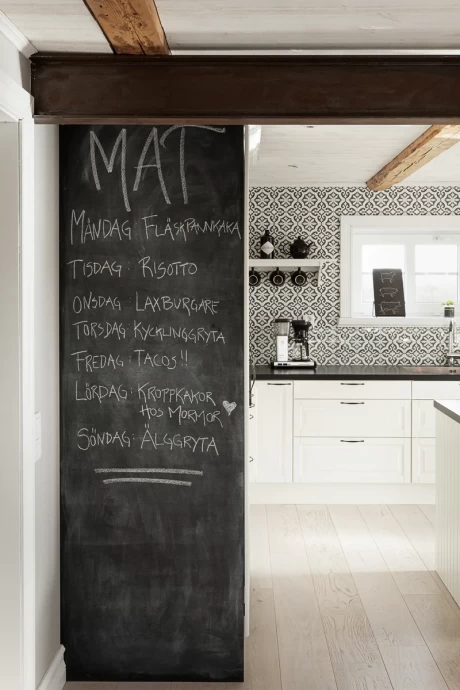 MAT
MÅNDAG FLÄSKPANNKAKA
TISDAG: RISOTTO
ONSDAG LAXBURGARE
TORSDAG: KYCKLINGGRYTA
FREDAG: TACOS!!
LÖRDAG: KROPPKAKOR
HOS MORMOR
SÖNDAG: ÄLGGRYTA